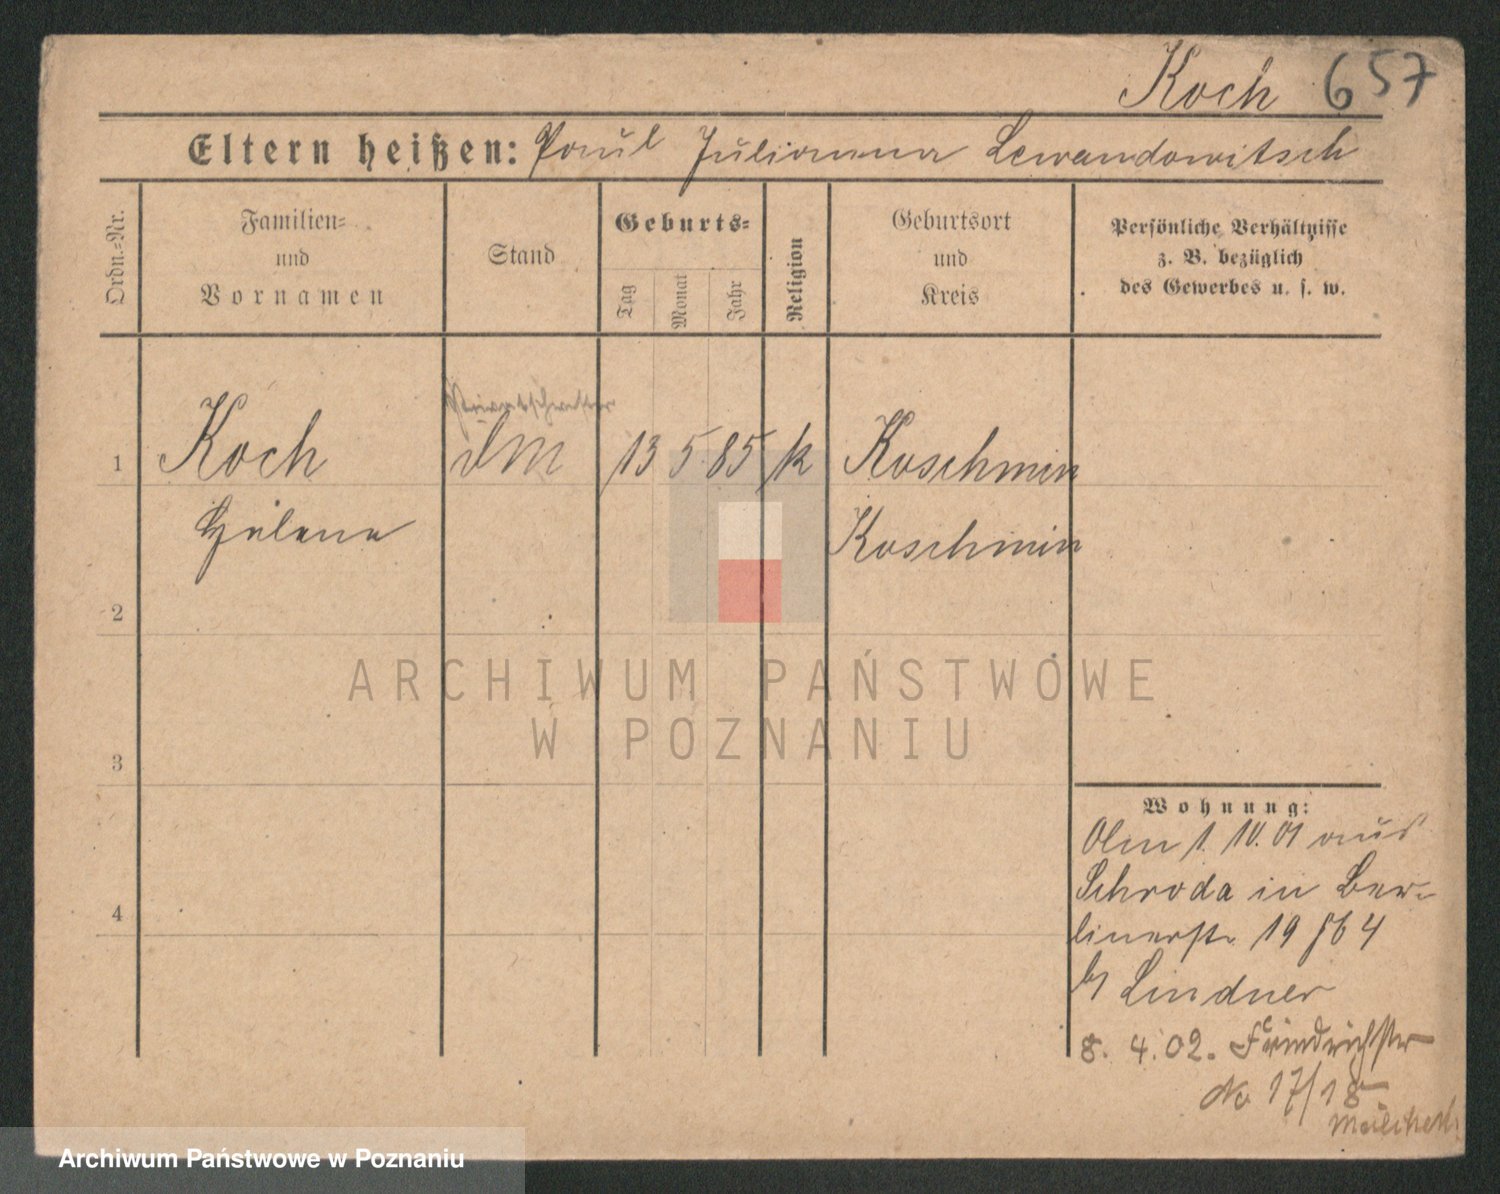 Koch 657
Eltern heißen: Paul Julianna Lewandowitsch
Ordn.-Nr.
Familien-
und
Vornamen
Stand
Geburts-
Tag
Monat
Jahr
Religion
Geburtsort
und
Kreis
Persönliche Verhältnisse
z. B. bezüglich
des Gewerbes u. s. w.
1 Koch 13 5 85 k Koschmin
Helene Koschmin
2
ARCHIWUM PAŃSTWOWE
W POZNANIU
3
Wohnung:
1. 10. 01 aus
Schroda in Ber-
4
linerstr 19
Lindner
8. 4. 02. Friedrichstr
No 17/18
Archiwum Państwowe w Poznaniu